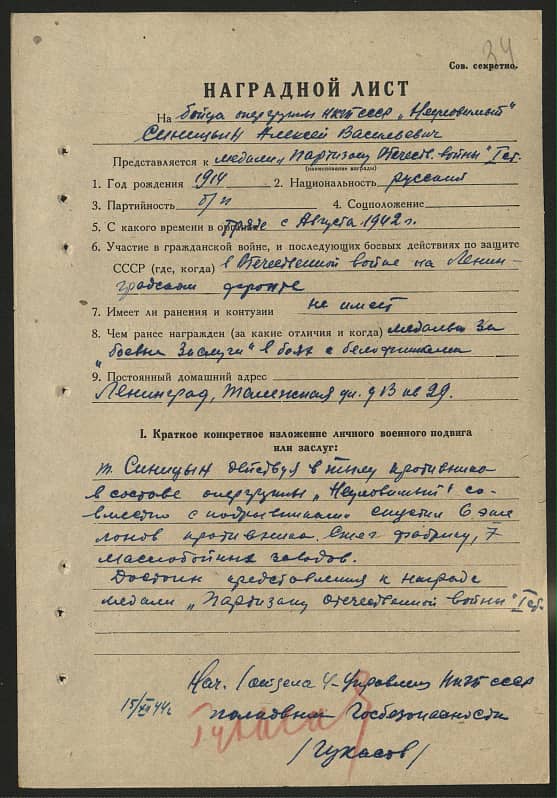 24
Сов. секретно.
НАГРАДНОЙ ЛИСТ
На бойца опергруппы НКГБ СССР „Неуловимый"
Синицын Алексей Васильевич
Представляется к медали „Партизану Отечеств. войны" I ст.
(наименование награды)
1. Год рождения 1914 2. Национальность русский
3. Партийность б/п 4. Соцположение
5. С какого времени в отряде с Августа 1942 г.
6. Участие в гражданской войне, и последующих боевых действиях по защите
СССР (где, когда) в Отечественной войне на Ленин-
градском фронте
7. Имеет ли ранения и контузии не имеет
8. Чем ранее награжден (за какие отличия и когда) медалью За
„боевые заслуги" в боях с белофиннами
9. Постоянный домашний адрес
Ленинград, ул. д 13 кв 29.
I. Краткое конкретное изложение личного военного подвига
или заслуг:
т. Синицын действуя в тылу противника
в составе опергруппы „Неуловимый" со-
вместно с подрывниками спустил 6 эше
лонов противника. Сжег фабрику, 7
маслобойных заводов.
Достоин представления к награде
медали „Партизану Отечественной войны" I ст.
Нач. 1 отдела 4-Управления НКГБ СССР
15/XI 44 г. полковник Госбезопасности
/Гукасов/